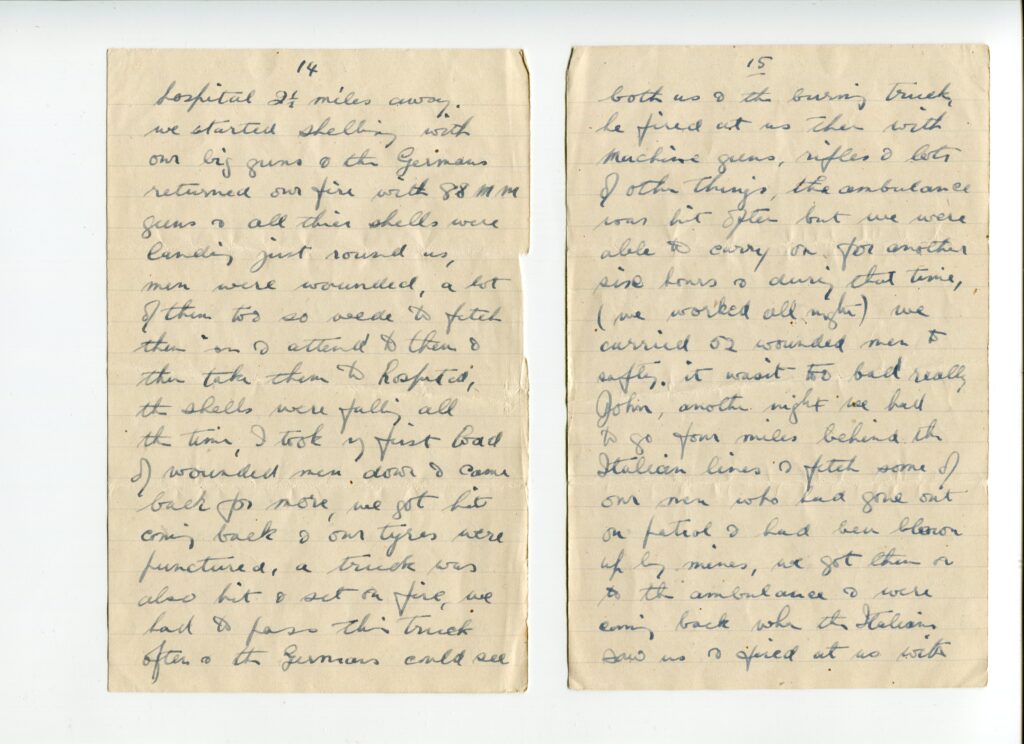 14
hospital 2½ miles away.
we started shelling with
our big guns & the Germans
returned our fire with 88 MM
guns & all thier shells were
landing just round us,
men were wounded, a lot
of them too so to fetch
them in & attend to them &
then take them to hospital,
the shells were falling all
the time, I took my first load
of wounded men down & came
back for more, we got hit
coming back & our tyres were
punctured, a truck was
also hit & set on fire, we
had to pass this truck
often & the Germans could see
15
both us & the burning truck,
he fired at us then with
machine guns, rifles & lots
of other things, the ambulance
was hit often but we were
able to carry on for another
six hours & during that time,
(we worked all night) we
carried 52 wounded men to
safty. it wasit too bad really
John, another night we had
to go four miles behind the
Italian lines & fetch some of
our men who had gone out
on patrol & had been blown
up by mines, we got them on
to the ambulance & were
coming back when the Italians
saw us & fired at us with